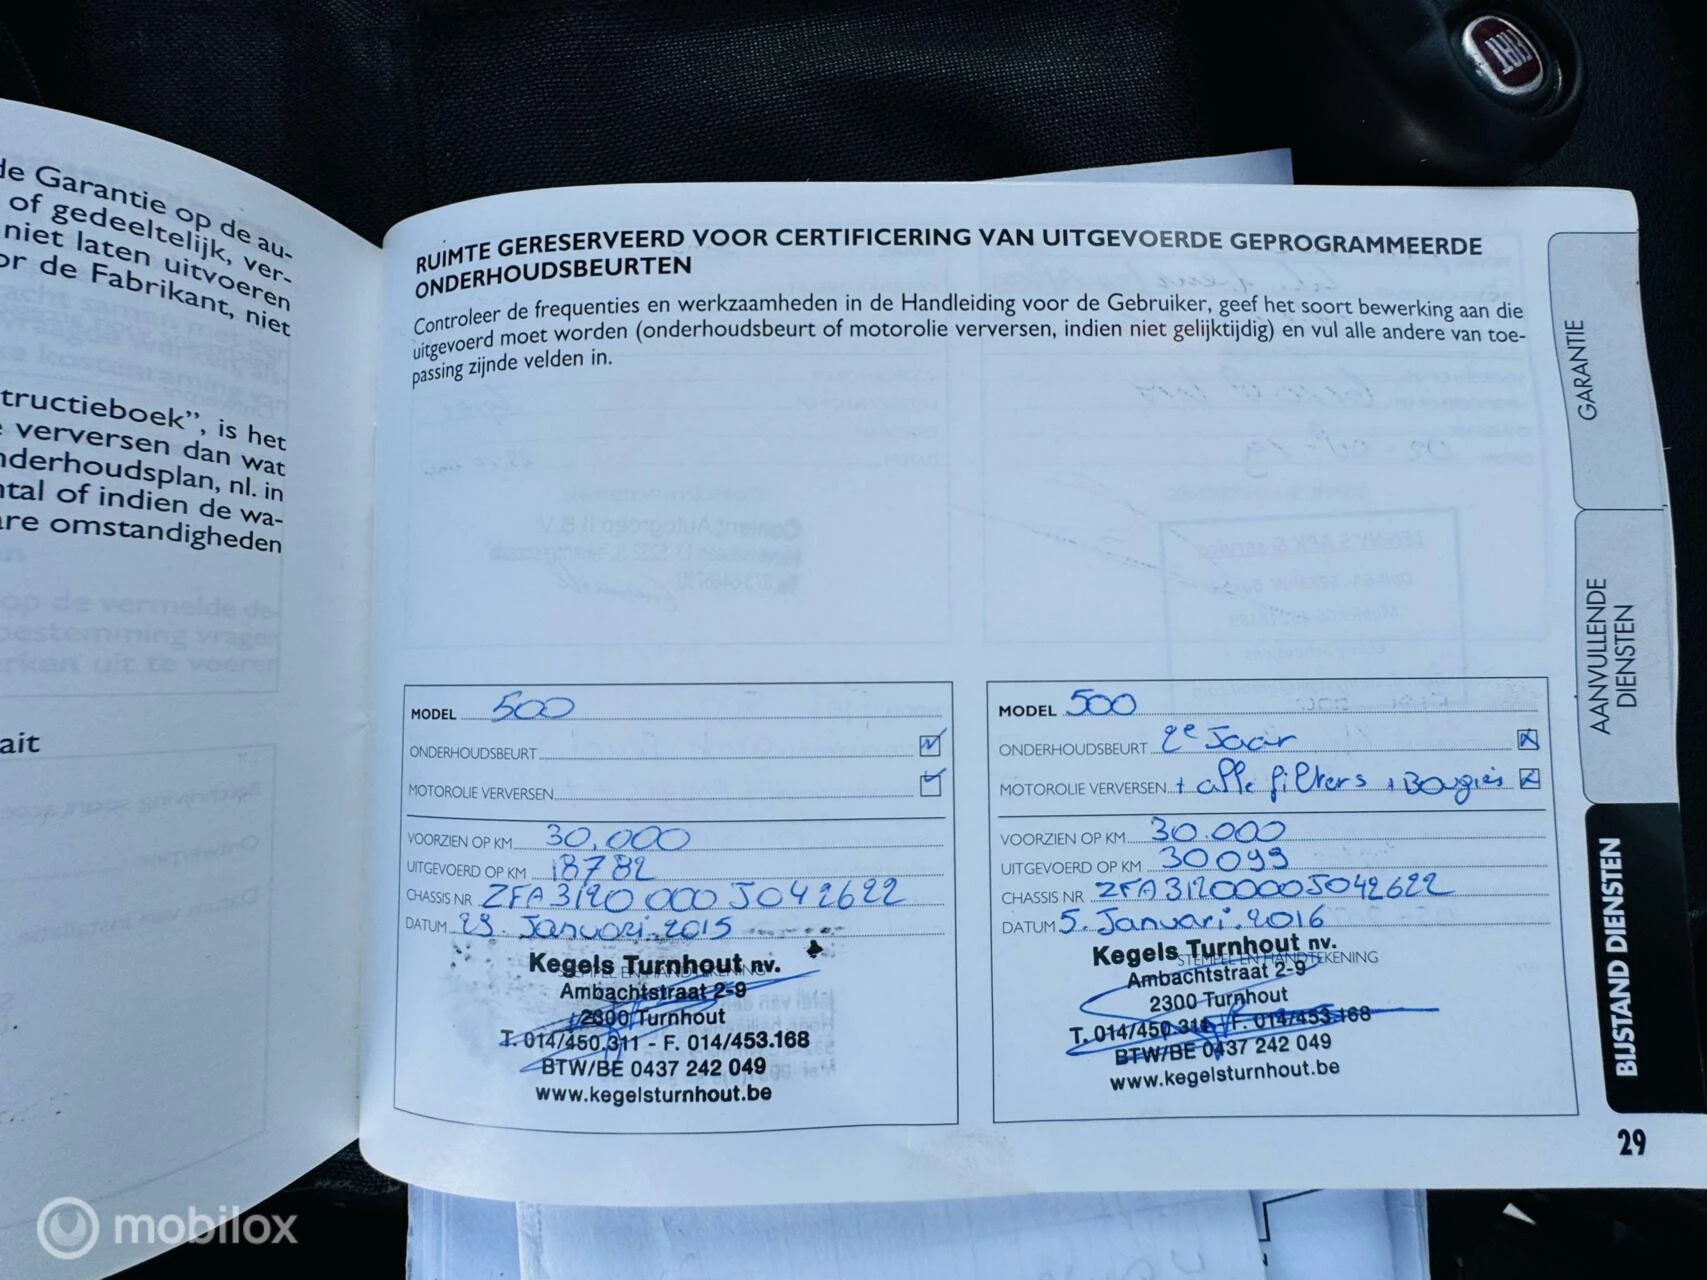 FIAT
de Garantie op de au-
of gedeeltelijk, ver-
niet laten uitvoeren
or de Fabrikant, niet
tructieboek", is het
verversen dan wat
nderhoudsplan, nl. in
ntal of indien de wa-
are omstandigheden
op de vermelde de-
bestemming vrager
rken uit te voeren
ait
RUIMTE GERESERVEERD VOOR CERTIFICERING VAN UITGEVOERDE GEPROGRAMMEERDE
ONDERHOUDSBEURTEN
Controleer de frequenties en werkzaamheden in de Handleiding voor de Gebruiker, geef het soort bewerking aan die
uitgevoerd moet worden (onderhoudsbeurt of motorolie verversen, indien niet gelijktijdig) en vul alle andere van toe-
passing zijnde velden in.
MODEL 500
ONDERHOUDSBEURT
MOTOROLIE VERVERSEN
VOORZIEN OP KM 30,000
UITGEVOERD OP KM 18782
CHASSIS NR ZFA3120000J042622
DATUM 29. Januari. 2015
STEMPEL EN HANDTEKENING
Kegels Turnhout nv.
Ambachtstraat 2-9
2300 Turnhout
T. 014/450.311 - F. 014/453.168
BTW/BE 0437 242 049
www.kegelsturnhout.be
MODEL 500
ONDERHOUDSBEURT 2e Jaar
MOTOROLIE VERVERSEN + alle filters + Bougies
VOORZIEN OP KM 30.000
UITGEVOERD OP KM 30099
CHASSIS NR ZFA3120000J042622
DATUM 5. Januari. 2016
STEMPEL EN HANDTEKENING
Kegels Turnhout nv.
Ambachtstraat 2-9
2300 Turnhout
T. 014/450.311 - F. 014/453.168
BTW/BE 0437 242 049
www.kegelsturnhout.be
GARANTIE
AANVULLENDE
DIENSTEN
BIJSTAND DIENSTEN
29
mobilox